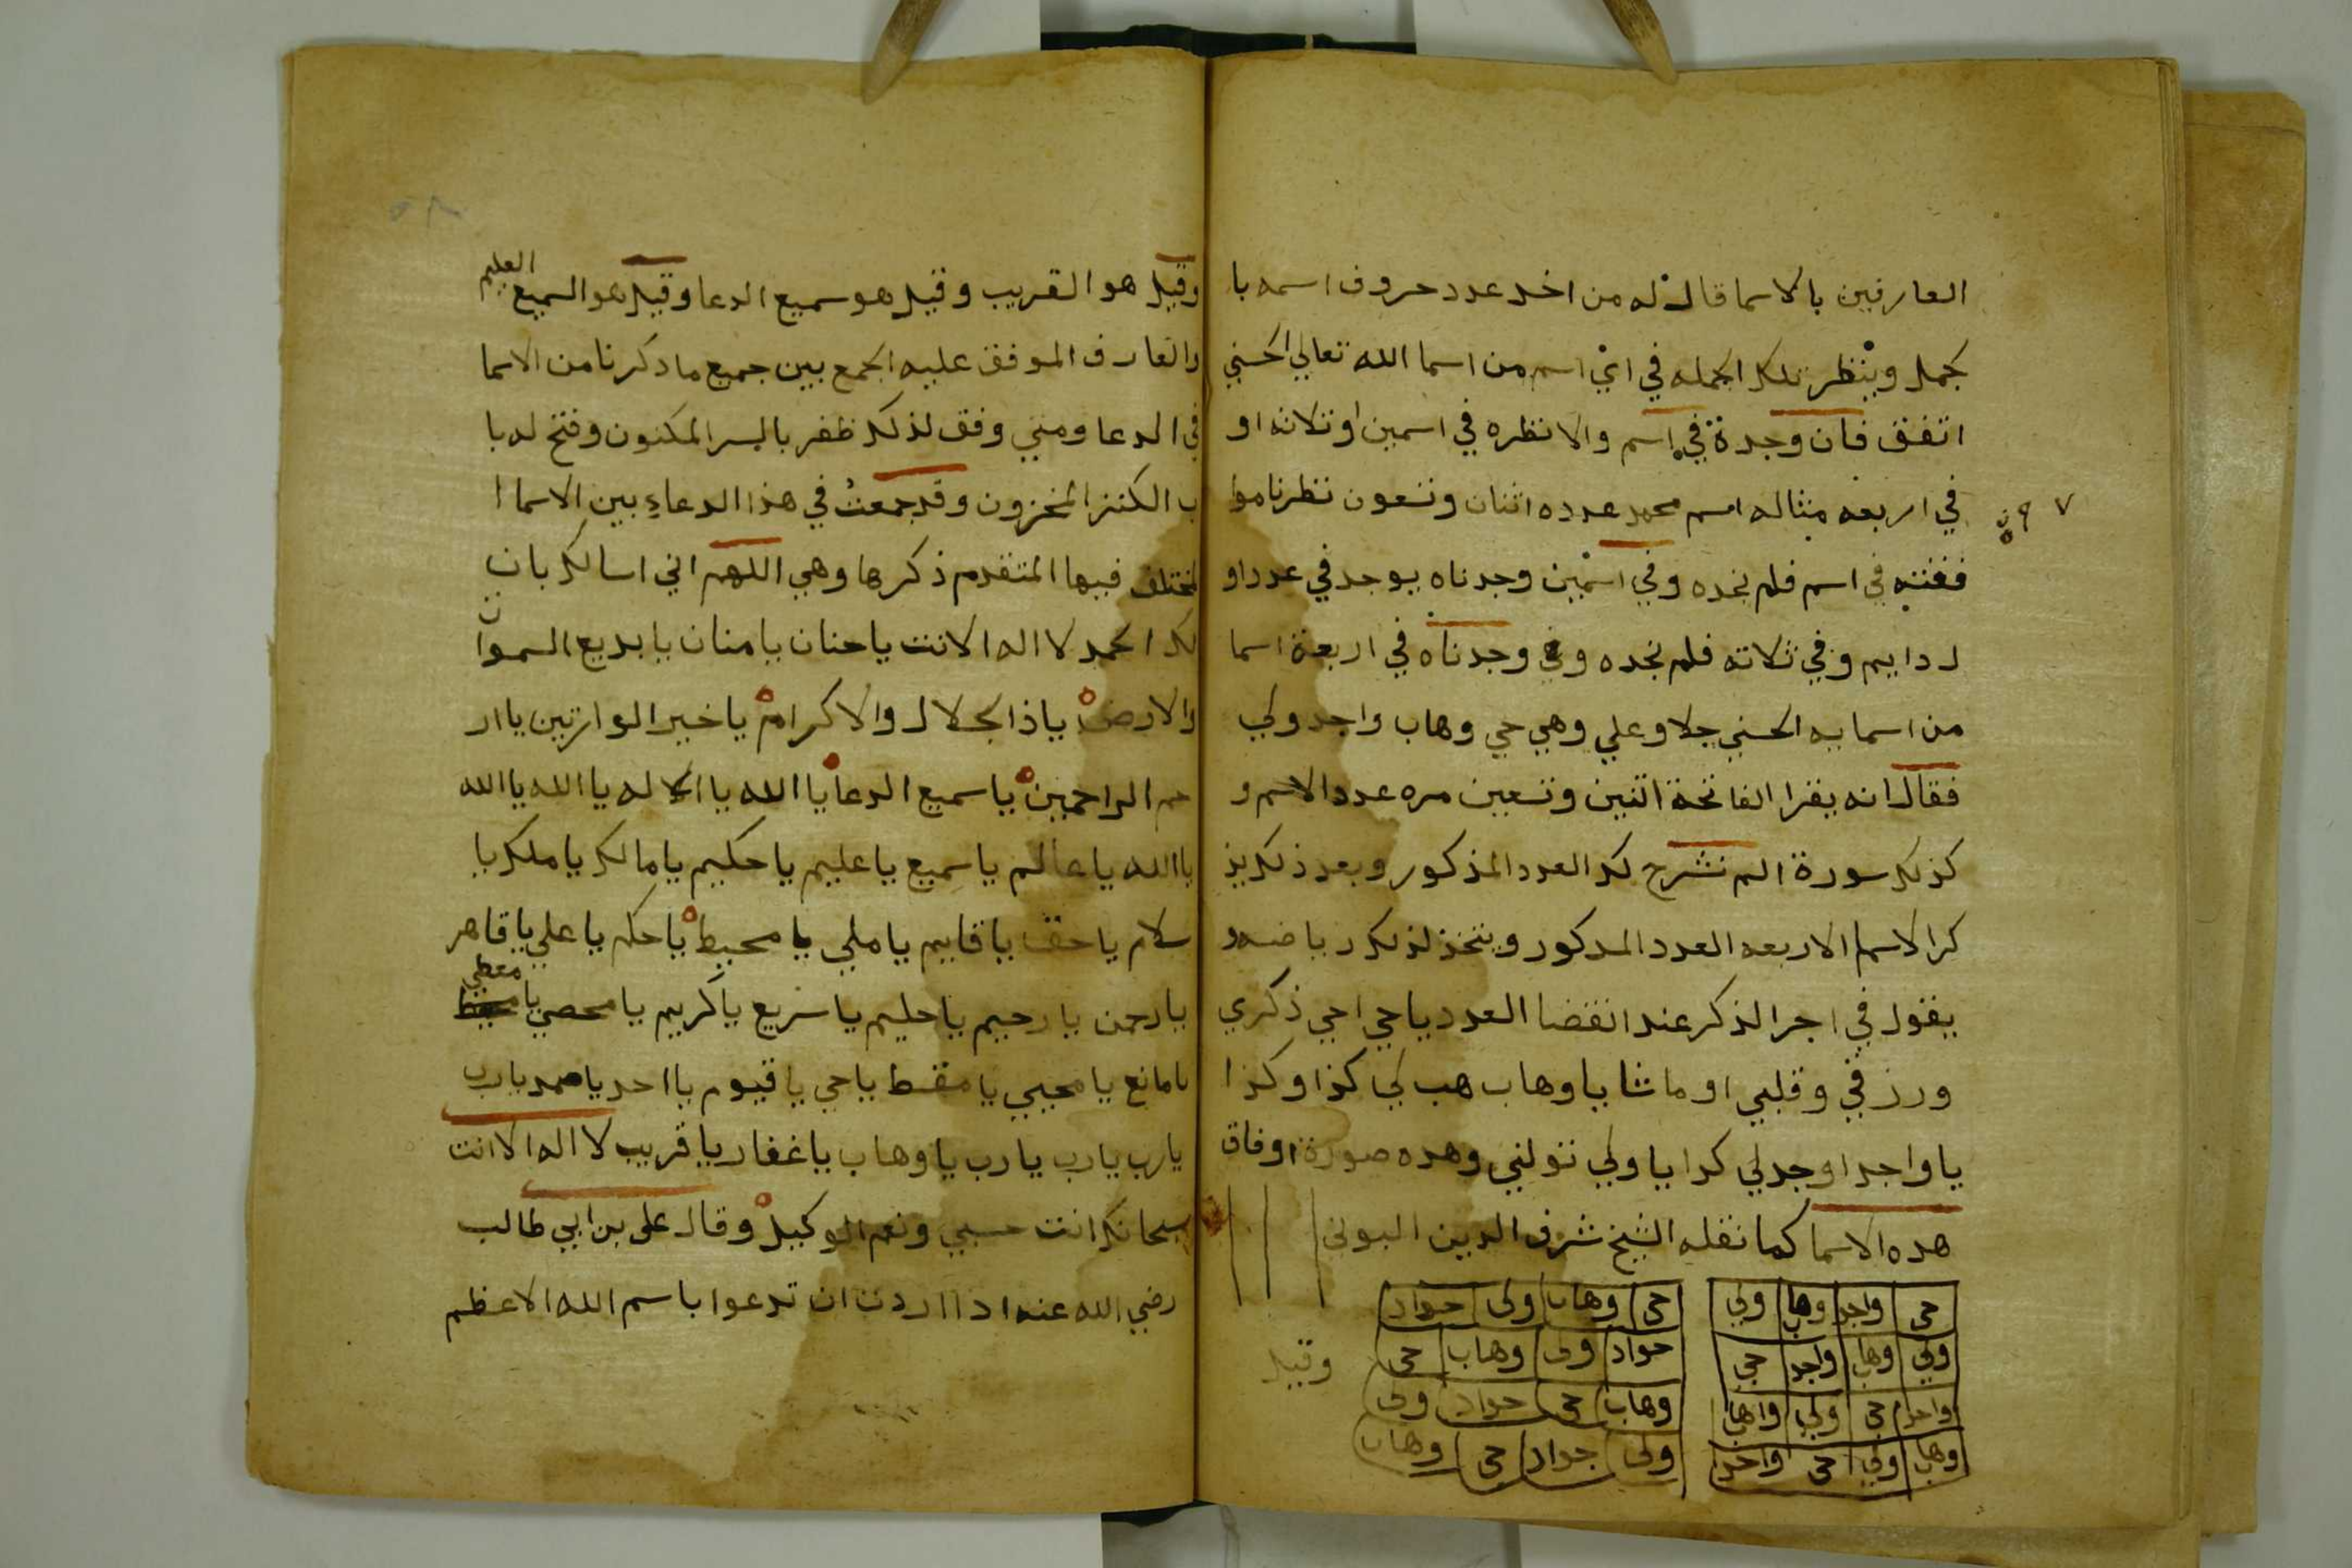 العارفين بالاسما قال له من اخد عدد حروف اسمه با
لجمل وينظر تلك الجمله في اي اسم من اسما الله تعالي الحسني
اتفق فان وجدة في اسم والا نظره في اسمين او ثلاثه او
في اربعه مثاله اسم محمد عدده اثنان وتسعون نظرنا موا
٧ ٩
ففته في اسم فلم نجده وفي اسمين وجدناه يوجد في عدد او
ل دايم وفي ثلاثه فلم نجده وفي وجدناه في اربعة اسما
من اسمايه الحسني جلا وعلي وهي حي وهاب واجد ولي
فقال انه يقرا الفاتحة اثنين وتسعين مره عدد الاسم و
كذلك سورة الم نشرح لك العدد المذكور وبعد ذلك يذ
كر الاسما الاربعه العدد المدكور ويتخذ لذلك رياضه و
يقول في اجر الذكر عند انقضا العدد يا حي احي ذكري
ورزقي وقلبي او ما شا يا وهاب هب لي كذا وكذا
يا واجد اوجد لي كدا يا ولي تولني وهده صورة اوفاق
هده الاسما كما نقله الشيخ شرف الدين البوني
حي واجد وهاب ولي
ولي وهاب واجد حي
واجد حي ولي واهاب
وهاب ولي حي واجد
حي وهاب ولي جواد
جواد ولي وهاب حي
وهاب حي جواد ولي
ولي جواد حي وهاب
وقيل
وقيل هو القريب وقيل هو سميع الدعا وقيل هو السميع العليم
والعارف الموفق عليه الجمع بين جميع ما دكرنا من الاسما
في الدعا ومتي وفق لذلك ظفر بالسر المكنون وفتح له با
ب الكنز المخزون وقد جمعت في هذا الدعاء بين الاسما ا
لمختلف فيها المتقدم ذكرها وهي اللهم اني اسالك بان
لك الحمد لا اله الا انت يا حنان يا منان يا بديع السموات
والارض يا ذا الجلال والاكرام يا خير الوارثين يا ار
حم الراحمين يا سميع الدعا يا الله يا الاله يا الله يا الله
يا الله يا عالم يا سميع يا عليم يا حكيم يا مالك يا ملك يا
سلام يا حق يا قايم يا ملي يا محيط يا حكم يا علي يا قاهر
يا رحمن يا رحيم يا حليم يا سريع يا كريم يا محصي يا معطي
يا مانع يا محيي يا مقسط يا حي يا قيوم يا احد يا صمد يا رب
يا رب يا رب يا رب يا وهاب يا غفار يا قريب لا اله الا انت
سبحانك انت حسبي ونعم الوكيل وقال علي بن ابي طالب
رضي الله عنه ادا اردت ان تدعوا باسم الله الاعظم